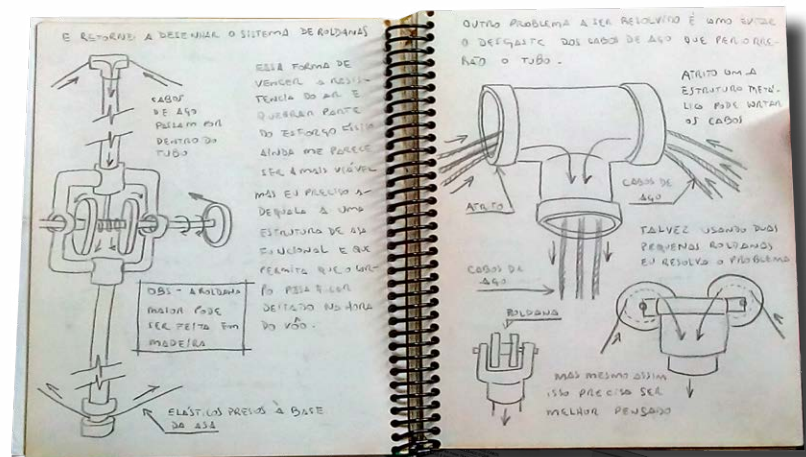 E RETORNEI A DESENHAR O SISTEMA DE ROLDANAS
CABOS
DE AÇO
PASSAM POR
DENTRO DO
TUBO
ESSA FORMA DE
VENCER A RESIS-
TENCIA DO AR E
QUEBRAR PARTE
DO ESFORÇO
AINDA ME PARECE
SER A MAIS VIÁVEL
MAS EU PRECISO A-
DEQUALA A UMA
ESTRUTURA DE ASA
FUNCIONAL E QUE
PERMITA QUE O COR-
PO POSSA FICAR
DEITADO NA HORA
DO VÔO.
OBS - A ROLDANA
MAIOR PODE
SER FEITA EM
MADEIRA
ELÁSTICOS PRESOS À BASE
DA ASA
OUTRO PROBLEMA A SER RESOLVIDO É COMO EVITAR
O DESGASTE DOS CABOS DE AÇO QUE PERCORRE-
RÃO O TUBO.
ATRITO COM A
ESTRUTURA METÁ-
LICA PODE CORTAR
OS CABOS
ATRITO
CABOS DE
AÇO
CABOS DE
AÇO
TALVEZ USANDO DUAS
PEQUENAS ROLDANAS
EU RESOLVA O PROBLEMA
ROLDANA
MAS MESMO ASSIM
ISSO PRECISA SER
MELHOR PENSADO